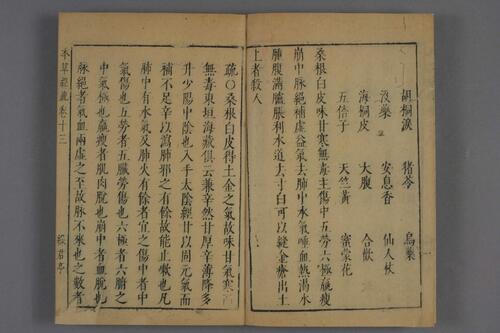 胡桐淚 猪苓 烏藥
沒藥 安息香 仙人杖
海桐皮 大腹 合歡
五倍子 天竺黃 蜜蒙花
桑根白皮味甘寒無毒主傷中五勞六極羸瘦
崩中脉絕補虛益氣去肺中水氣唾血熱渴水
腫腹滿臚脹利水道去寸白可以縫金瘡出土
上者殺人
疏〇桑根白皮得土金之氣故味甘氣寒而
無毒東垣海藏俱云兼辛然甘厚辛薄降多
升少陽中陰也入手太陰經甘以固元氣而
補不足辛以瀉肺邪之有餘故能止嗽也凡
肺中有水氣及肺火有餘者宜之傷中者中
氣傷也五勞者五臟勞傷也六極者六腑之
中氣極也羸瘦者肌肉脫也崩中者血脫也
脉絕者氣血兩虛之至故脉不來也之數者
本草經疏卷十三
綠君亭